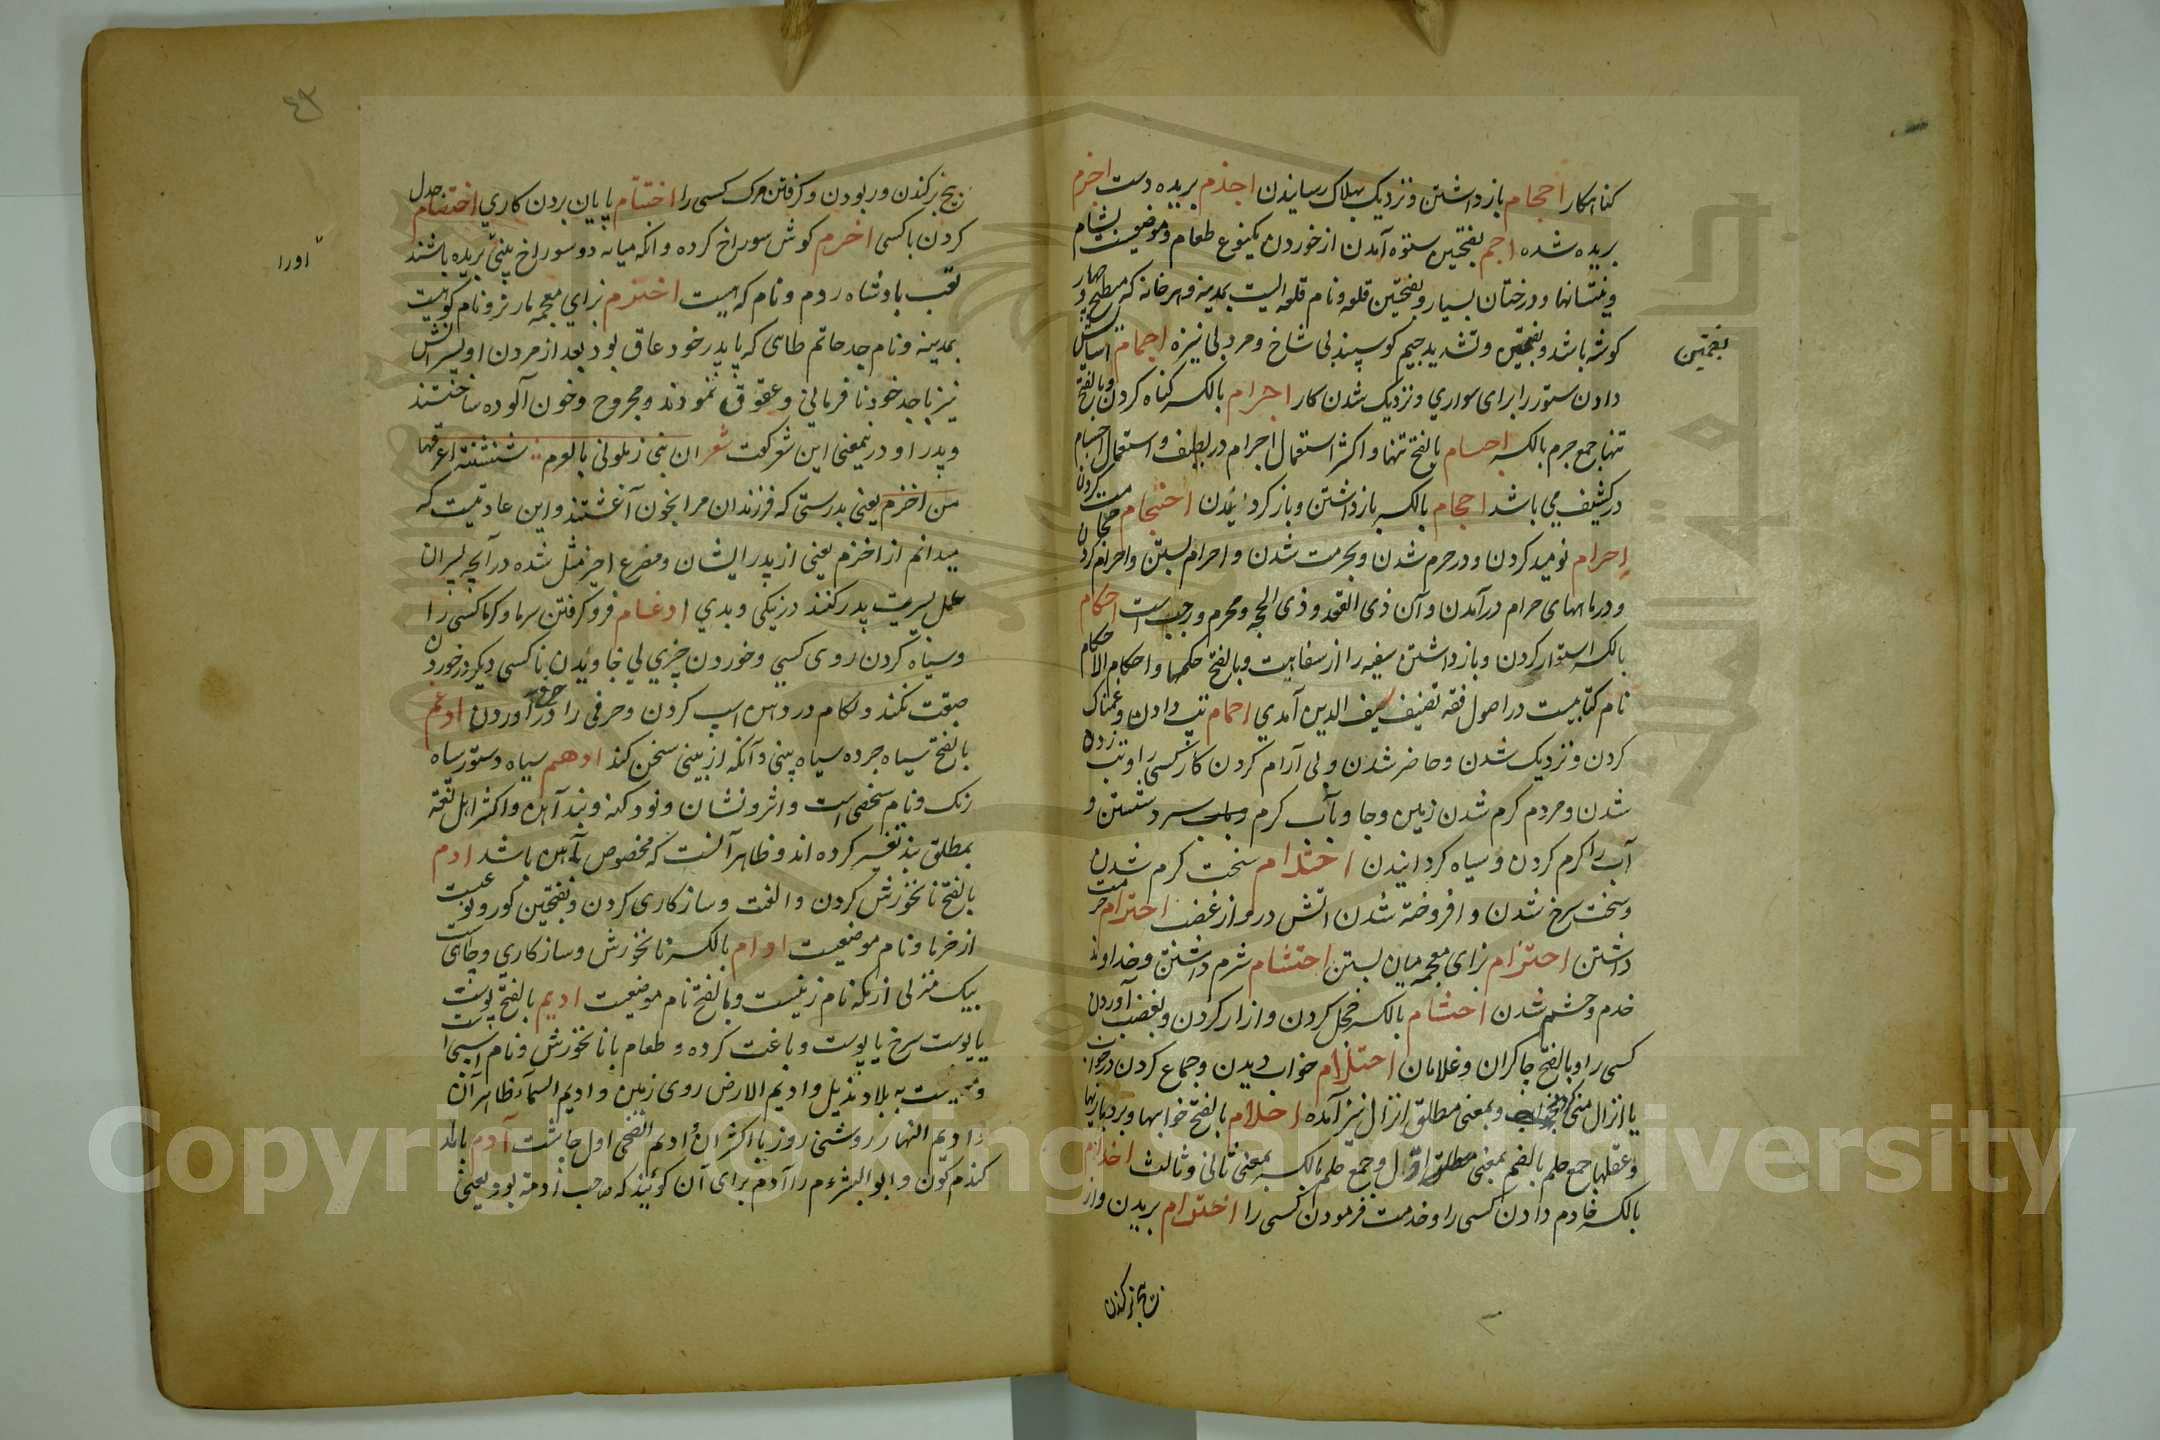 کناهکار احجام بازداشتن و نزدیک بهلاک رسانیدن اجذم بریده دست اجزم
بریده شده اجم بفتحتین ستوه آمدن از خوردن یکنوع طعام و موضعیست بشام
و نیستانها و درختان بسیار و بضمتین قلعه و نام قلعه ایست بمدینه و هر خانه که مسطح و چهار
کوشه باشد و بفتحتین و تشدید جیم کوسپند بی شاخ و مرد بی نیزه اجمام آسایش
بضمتین
دادن ستور را برای سواری و نزدیک شدن کار اجرام بالکسر کناه کردن و بالفتح
تنها جمع جرم بالکسر اجسام بالفتح تنها و اکثر استعمال اجرام در لطیف و استعمال اجسام
در کثیف می باشد احجام بالکسر بازداشتن و باز کردانیدن احتجام حجامت کردن
احرام نومید کردن و در حرم شدن و بحرمت شدن و احرام بستن و احرام کردن
و در ماههای حرام درآمدن و آن ذی القعده و ذی الحجه و محرم و رجب است احکام
بالکسر استوار کردن و بازداشتن سفیه را از سفاهت و بالفتح حکمها و احکام الاحکام
نام کتابیست در اصول فقه تصنیف سیف الدین آمدی احمام تب دادن و غمناک
کردن و نزدیک شدن و حاضر شدن و بی آرام کردن کار کسی را و تب زده
شدن و مردم کرم شدن زمین و جا و بآب کرم و بآب سرد شستن و
آب را کرم کردن و سیاه کردانیدن احتدام سخت کرم شدن
و سخت سرخ شدن و افروخته شدن آتش در مرد از غضب احترام حرمت
داشتن احتزام بزای معجمه میان بستن احتشام شرم داشتن و خداوند
خدم و حشم شدن احشام بالکسر خجل کردن و ازار کردن و بغضب آوردن
کسی را و بالفتح چاکران و غلامان احتلام خواب دیدن و جماع کردن در خواب
یا انزال منی کردن و بمعنی مطلق انزال نیز آمده احلام بالفتح خوابها و بردباریها
و عقلها جمع حلم بالضم بمعنی مطلق اول و جمع حلم بالکسر بمعنی ثانی و ثالث اخدام
بالکسر خادم دادن کسی را و خدمت فرمودن کسی را اخترام بریدن و از
بیخ برکندن
٤٣
بیخ برکندن و ربودن و کرفتن مرک کسی را اختتام پایان بردن کاری اختصام جدل
کردن با کسی اخرم کوش سوراخ کرده و آنکه میانه دو سوراخ بینی بریده باشند
اورا
لقب بادشاه روم و نام کوهیست اخزم بزای معجمه مار نر و نام کوهیست
بمدینه و نام جد حاتم طائی که با پدر خود عاق بود بعد از مردن او پسرانش
نیز با جد خود نافرمانی و عقوق نمودند و مجروح و خون آلوده ساختند
و پدر او درینمعنی این شعر کفت شعر ان بنی زملونی بالدم شنشنة اعرفها
من اخزم یعنی بدرستی که فرزندان مرا بخون آغشتند و این عادتیست که
میدانم از اخزم یعنی از پدر ایشان و مصرع اخیر مثل شده در آنچه پسران
عمل بسیرت پدر کنند در نیکی و بدی ادغام فرو کرفتن سرما و کرما کسی را
و سیاه کردن روی کسی و خوردن چیزی بی خاویدن تا کسی دیکر در خوردن
سبقت نکند و لکام در دهن اسب کردن و حرفی را در حرف آوردن ادغم
بالفتح سیاه چرده سیاه بینی و آنکه از بینی سخن کند ادهم سیاه و ستور سیاه
رنک و نام شخصی است و اثر و نشان و نو و کهنه و بند آهن و اکثر اهل لغة
بمطلق بند تفسیر کرده اند و ظاهر آنست که مخصوص بآهن باشد ادم
بالفتح نانخورش کردن و الفت و سازکاری کردن و بفتحتین کور و نوعیست
از خرما و نام موضعیست ادام بالکسر نانخورش و سازکاری و چاهی است
بیک منزلی از مکه نام زنیست و بالفتح نام موضعیست ادیم بالفتح پوست
یا پوست سرخ یا پوست دباغت کرده و طعام با نانخورش و نام اسبی است
و است به بلاد هذیل و ادیم الارض روی زمین و ادیم السماء ظاهر آن
و ادیم النهار روشنی روز یا اکثر ان ادیم الضحی اول چاشت آدم بالمد
کندم کون و ابوالبشر ع م را آدم برای آن کویند که صاحب ادمة بود یعنی